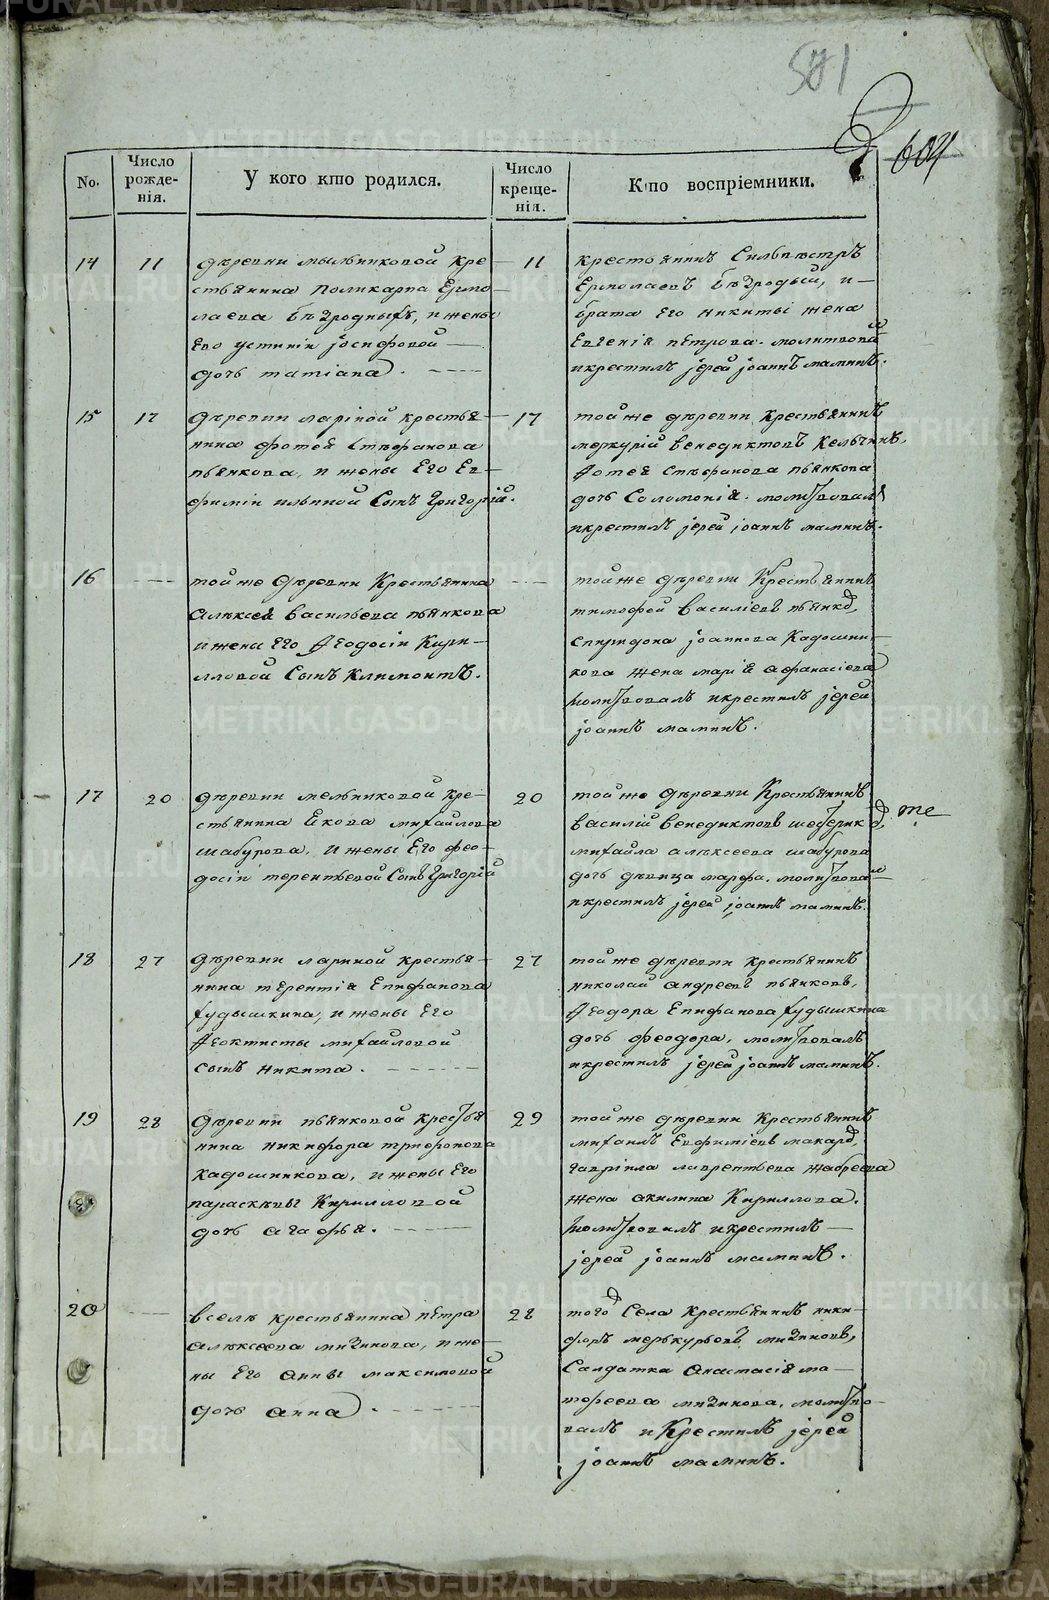 581
604
No.
Число рожде-нія.
У кого кто родился.
Число креще-нія.
Кто воспріемники.
14
11
деревни мыльниковой кре-
стьянина Поликарпа Ермо-
лаева безродныхъ, и жены
Его устиніи іосифовой —
дочь татіана.
11
крестьянинъ Сильвестръ
Ермолаевъ безродный, и —
брата Его никиты жена
Евгенія петрова. молитвовал
и крестилъ іерей іоаннъ маминъ.
15
17
деревни лариной крестья-
нина фотея Стефанова
пьянкова, и жены Его Ев-
фиміи ильиной Сынъ Григорій.
17
той же деревни крестьянинъ
меркурій венедиктовъ
фотея Стефанова пьянкова
дочь Соломонія. молитвовалъ
и крестилъ іерей іоаннъ маминъ.
16
той же деревни Крестьянина
алексея васильева пьянкова
и жены Его Феодосіи Кири-
лловой Сынъ климонтъ.
той же деревни Крестьянинъ
тимофей василіевъ пьянков,
спиридона іоаннова Кадошни-
кова жена марія афанасіева
молитвовалъ и крестилъ іерей
іоаннъ маминъ.
17
20
деревни мельниковой кре-
стьянина Якова михайлова
шабурова, и жены Его фео-
досіи терентьевой Сынъ Григорій
20
той же деревни Крестьянинъ
василій венедиктовъ
михайла алексеева шабурова
дочь девица марфа. молитвовал
и крестилъ іерей іоаннъ маминъ.
те
18
27
деревни лариной крестья-
нина терентія Епифанова
худышкина, и жены Его
Феоктисты михайловой
сынъ никита.
27
той же деревни крестьянинъ
николай андреевъ пьянковъ,
Феодора Епифанова худышкина
дочь феодора, молитвовалъ
и крестилъ іерей іоаннъ маминъ.
19
28
деревни пьянковой крестья
нина никифора трифонова
кадошникова, и жены Его
параскевы Кирилловой
дочь агафья.
29
той же деревни Крестьянинъ
михаилъ Евфиміевъ макаров,
гавріила лаврентьева жабреева
жена акилина Кириллова.
молитвовалъ и крестилъ —
іерей іоаннъ маминъ.
20
в селе крестьянина петра
алексеева мизинова, и же-
ны Его анны максимовой
дочь анна.
28
того Села крестьянинъ ники-
форъ меркурьевъ мизиновъ,
Салдатка анастасія ма-
тофеева мизинова. молитво-
валъ и Крестилъ іерей
іоаннъ маминъ.
METRIKI.GASO-URAL.RU